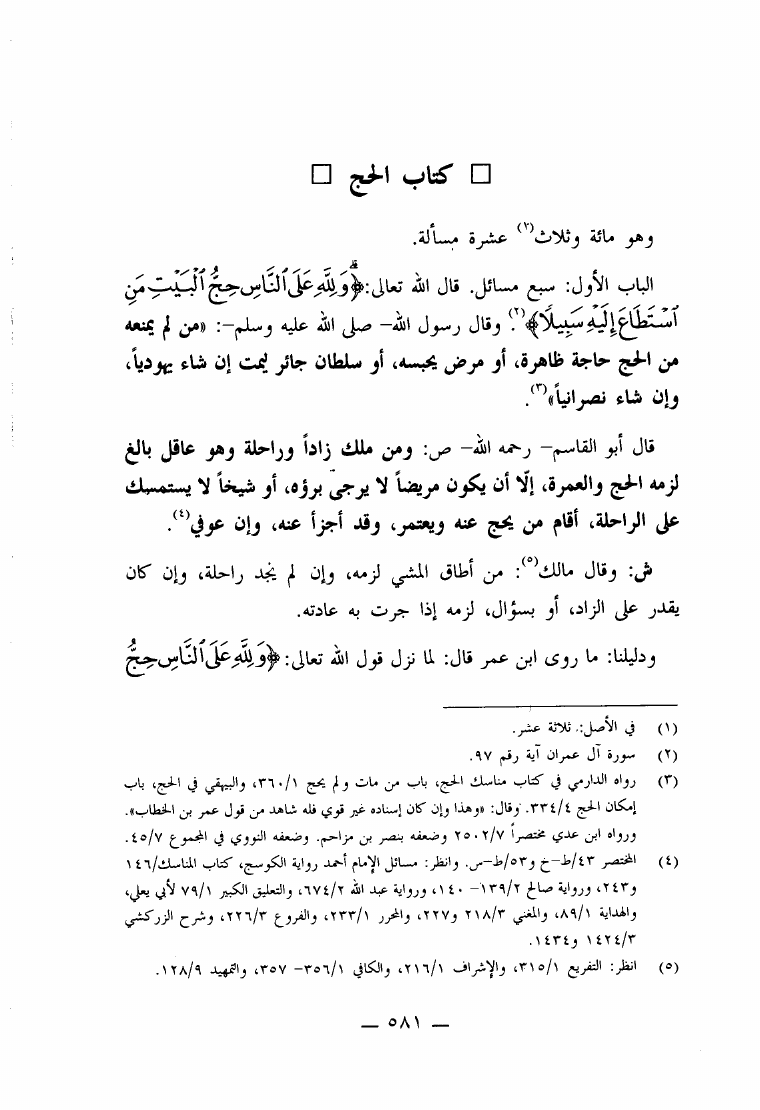 □ كتاب الحج □
وهو مائة وثلاث(٢) عشرة مسألة.
الباب الأول: سبع مسائل. قال الله تعالى: ﴿وَلِلَّهِ عَلَى ٱلنَّاسِ حِجُّ ٱلْبَيْتِ مَنِ
ٱسْتَطَاعَ إِلَيْهِ سَبِيلًا﴾(٢). وقال رسول الله– صلى الله عليه وسلم–: «من لم يمنعه
من الحج حاجة ظاهرة، أو مرض يحبسه، أو سلطان جائر ليمت إن شاء يهودياً،
وإن شاء نصرانياً»(٣).
قال أبو القاسم– رحمه الله– ص: ومن ملك زاداً وراحلة وهو عاقل بالغ
لزمه الحج والعمرة، إلّا أن يكون مريضاً لا يرجى برؤه، أو شيخاً لا يستمسك
على الراحلة، أقام من يحج عنه ويعتمر، وقد أجزأ عنه، وإن عوفي(٤).
ش: وقال مالك(٥): من أطاق المشي لزمه، وإن لم يجد راحلة، وإن كان
يقدر على الزاد، أو بسؤال، لزمه إذا جرت به عادته.
ودليلنا: ما روى ابن عمر قال: لما نزل قول الله تعالى: ﴿وَلِلَّهِ عَلَى ٱلنَّاسِ حِجُّ
(١) في الأصل: ثلاثة عشر.
(٢) سورة آل عمران آية رقم ٩٧.
(٣) رواه الدارمي في كتاب مناسك الحج، باب من مات ولم يحج ٣٦٠/١، والبيهقي في الحج، باب
إمكان الحج ٣٣٤/٤. وقال: «وهذا وإن كان إسناده غير قوي فله شاهد من قول عمر بن الخطاب».
ورواه ابن عدي مختصراً ٢٥٠٢/٧ وضعفه بنصر بن مزاحم. وضعفه النووي في المجموع ٤٥/٧.
(٤) المختصر ٤٣/ط–خ و٥٣/ط–س. وانظر: مسائل الإمام أحمد رواية الكوسج، كتاب المناسك/١٤٦
و٢٤٣، ورواية صالح ١٣٩/٢– ١٤٠، ورواية عبد الله ٦٧٤/٢، والتعليق الكبير ٧٩/١ لأبي يعلي،
والهداية ٨٩/١، والمغني ٢١٨/٣ و٢٢٧، والمحرر ٢٣٣/١، والفروع ٢٢٦/٣، وشرح الزركشي
١٤٢٤/٣ و١٤٣٤.
(٥) انظر: التفريع ٣١٥/١، والإشراف ٢١٦/١، والكافي ٣٥٦/١– ٣٥٧، والتمهيد ١٢٨/٩.
— ٥٨١ —